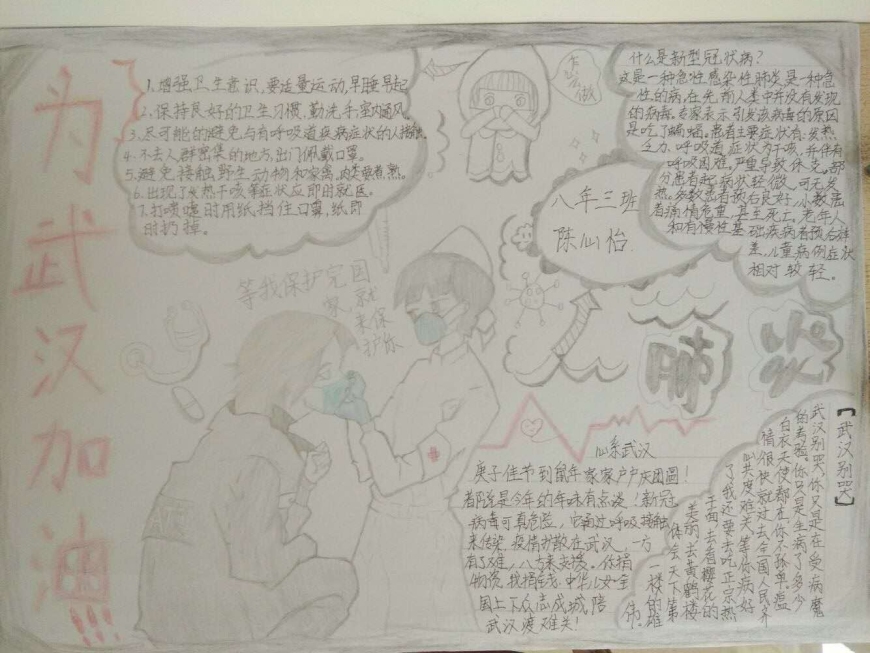 为武汉加油!!!
1.增强卫生意识,要适量运动,早睡早起
2.保持良好的卫生习惯,勤洗手,室内通风。
3.尽可能的避免与有呼吸道疾病症状的人接触。
4.不去人群密集的地方,出门佩戴口罩。
5.避免接触野生动物和家禽,肉类要煮熟。
6.出现了发热干咳等症状应即时就医。
7.打喷嚏时用纸挡住口鼻,纸即
时扔掉。
怎么做
什么是新型冠状病?
这是一种急性感染性肺炎是一种急
性的病,在先前人类中并没有发现
的病毒。专家表示引发该病毒的原因
是吃了蝙蝠。患者主要症状有:发热、
乏力,呼吸道症状为干咳,并伴有
呼吸困难,严重导致休克。部
分患者起病状轻微,可无发
热。多数患者预后良好,小数患
者病情危重,甚至死亡,老年人
和有慢性基础疾病者预后较
差,儿童病例症状
相对较轻。
八年三班
陈仙怡
等我保护完国
家,就
来保
护你
肺炎
心系武汉
庚子佳节到鼠年家家户户庆团圆!
都说是今年的年味有点淡!新冠
病毒可真危险,它通过呼吸接触
来传染。疫情扩散在武汉,一方
有了难,八方来支援。你捐
物资,我捐钱,中华儿女全
国上下众志成城,陪
武汉渡难关!
【武汉别哭】
武汉别哭,你只是在受病魔
的考验,你只是生病了,多少
白衣天使都在,你不孤单,瘟
情很快就过去,全国人民齐
心共度难关,等你病好
了,我还要去吃正宗热
干面,去看樱花的
美丽,去黄鹤楼
体会天下第
一楼的雄
伟。